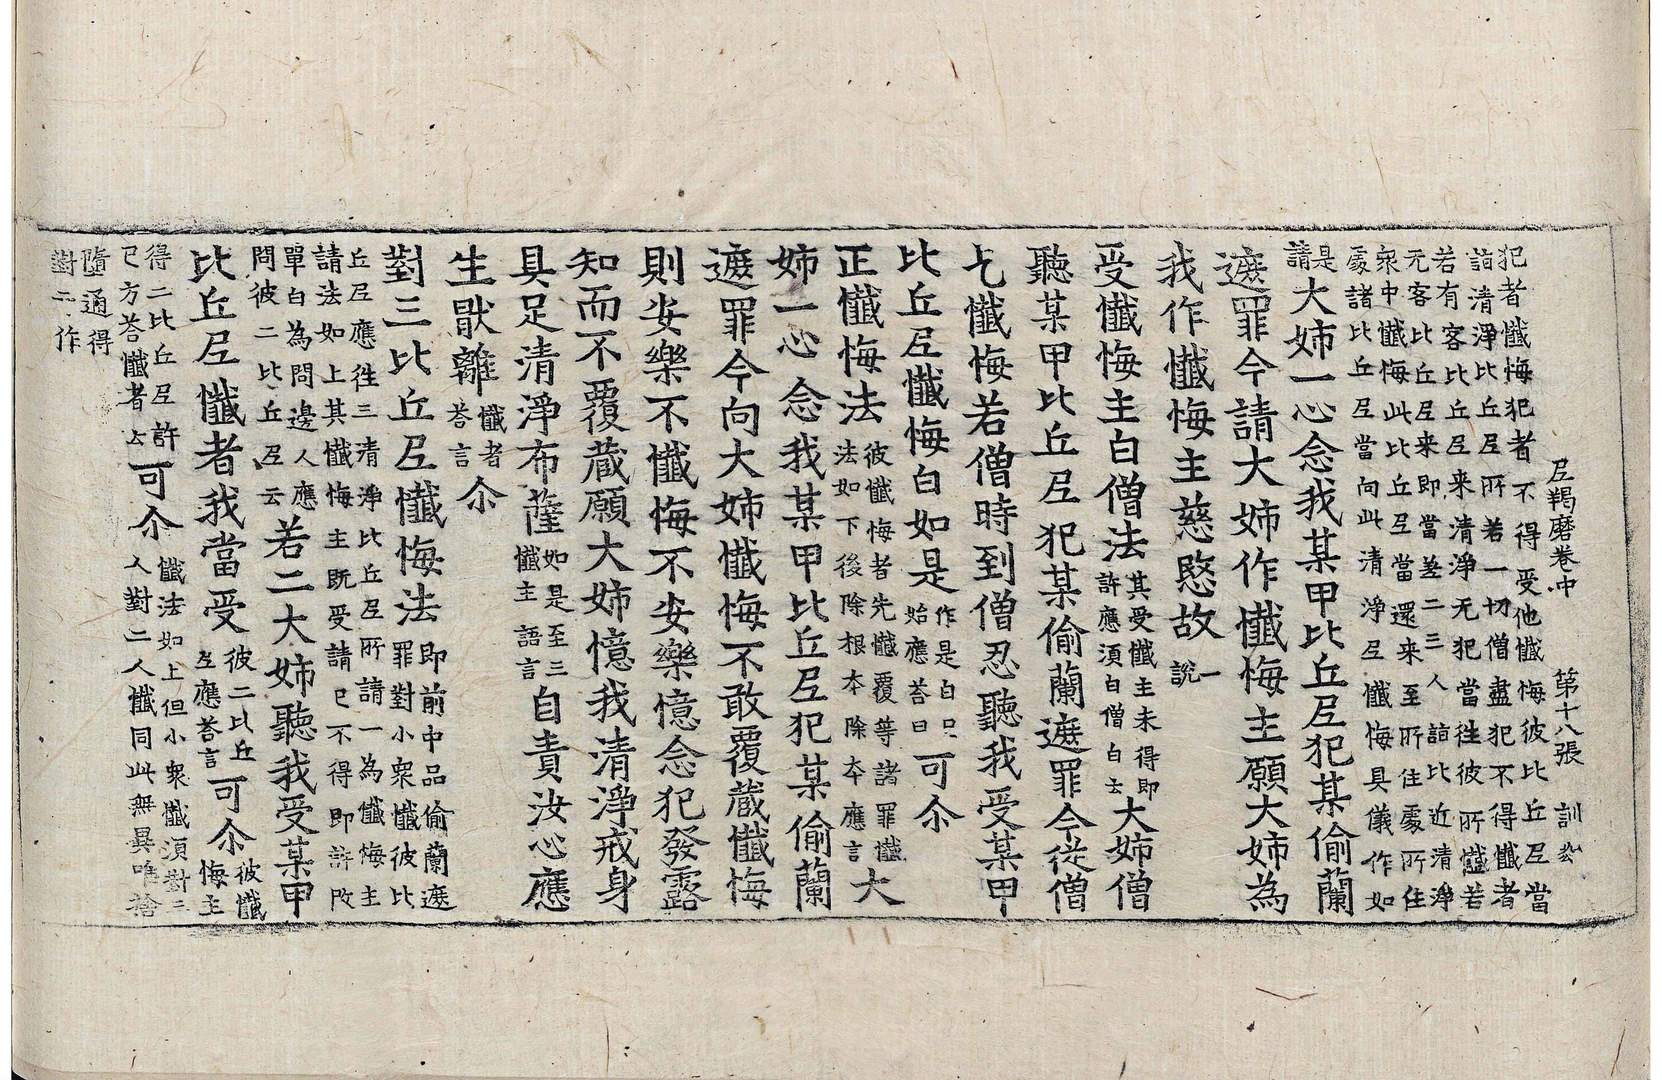 尼羯磨卷中　第十八張　訓
犯者懺悔犯者不得受他懺悔彼比丘尼當
詣清淨比丘尼所若一切僧盡犯不得懺者
若有客比丘尼来清淨无犯當往彼所懺若
无客比丘尼来即當差二三人詣比近清淨
衆中懺悔此比丘尼當還来至所住處所住
處諸比丘尼當向此清淨尼懺悔具儀作如
是請大姉一心念我某甲比丘尼犯某偷蘭
遮罪今請大姉作懺悔主願大姉為
我作懺悔主慈愍故一說
受懺悔主白僧法其受懺主未得即許應須白僧白言大姉僧
聽某甲比丘尼犯某偷蘭遮罪今從僧
乞懺悔若僧時到僧忍聽我受某甲
比丘尼懺悔白如是作是白已始應荅曰可尒
正懺悔法彼懺悔者先懺覆等諸罪懺法如下後除根本除本應言大
姉一心念我某甲比丘尼犯某偷蘭
遮罪今向大姉懺悔不敢覆蔵懺悔
則安樂不懺悔不安樂憶念犯發露
知而不覆蔵願大姉憶我清淨戒身
具足清淨布薩如是至三懺主語言自責汝心應
生猒離懺者荅言尒
對三比丘尼懺悔法即前中品偷蘭遮罪對小衆懺彼比
丘尼應往三清淨比丘尼所請一為懺悔主
請法如上其懺悔主既受請已不得即許改
單白為問邊人應問彼二比丘尼云若二大姉聽我受某甲
比丘尼懺者我當受彼二比丘尼應荅言可尒彼懺悔主
得二比丘尼許已方荅懺者言可尒懺法如上但小衆懺須對二人對二人懺同此無異唯捨
墮通得對二作